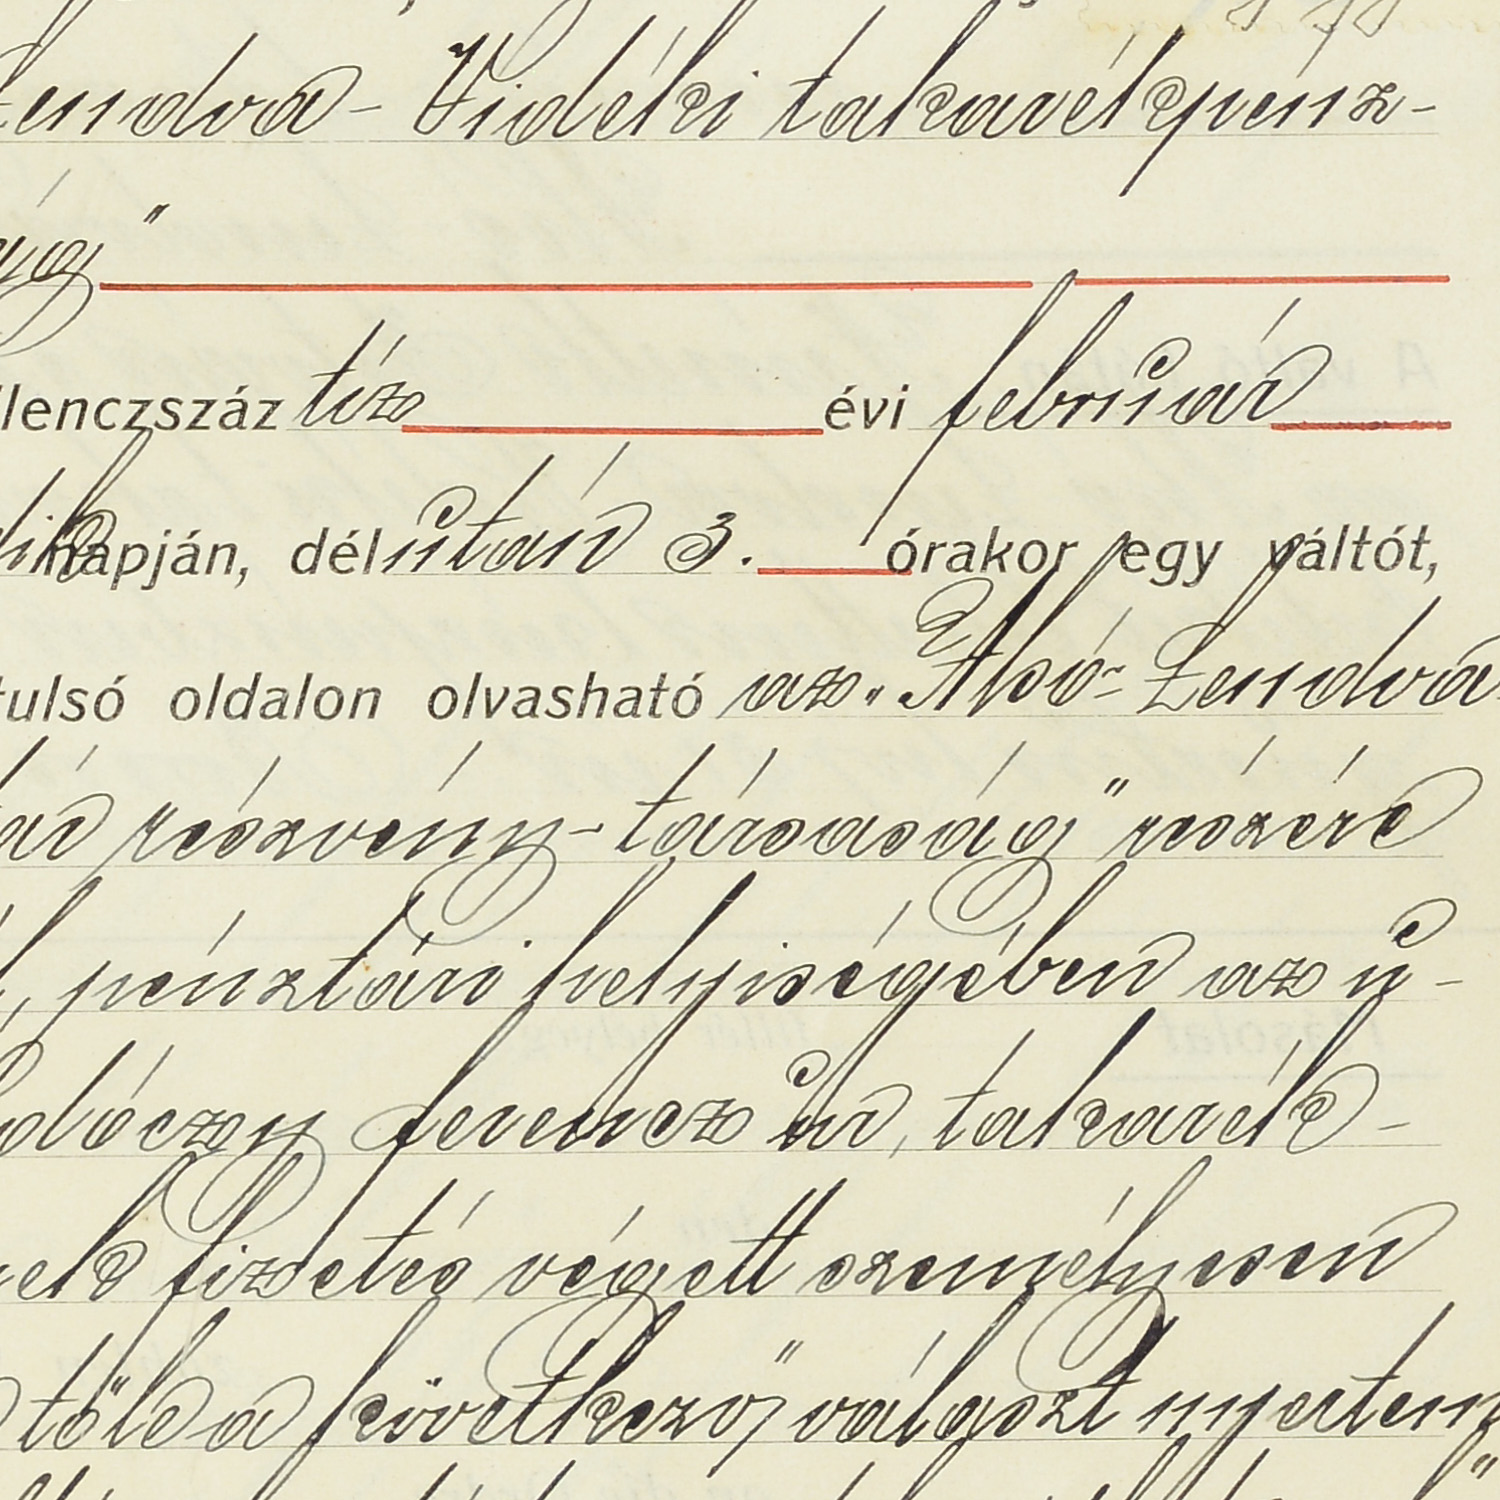 Lendva - Vidéki takarékpénz-
ság"
lenczszáz tíz évi február
dik napján, délután 3. órakor egy váltót,
tulsó oldalon olvasható az „Alsó-Lendva
tár részvény-társaság" részére
pénztári helyiségében az ü-
dóczy Ferencz úr, takarék-
nek fizetés végett személyesen
tőle a következő választ nyertem